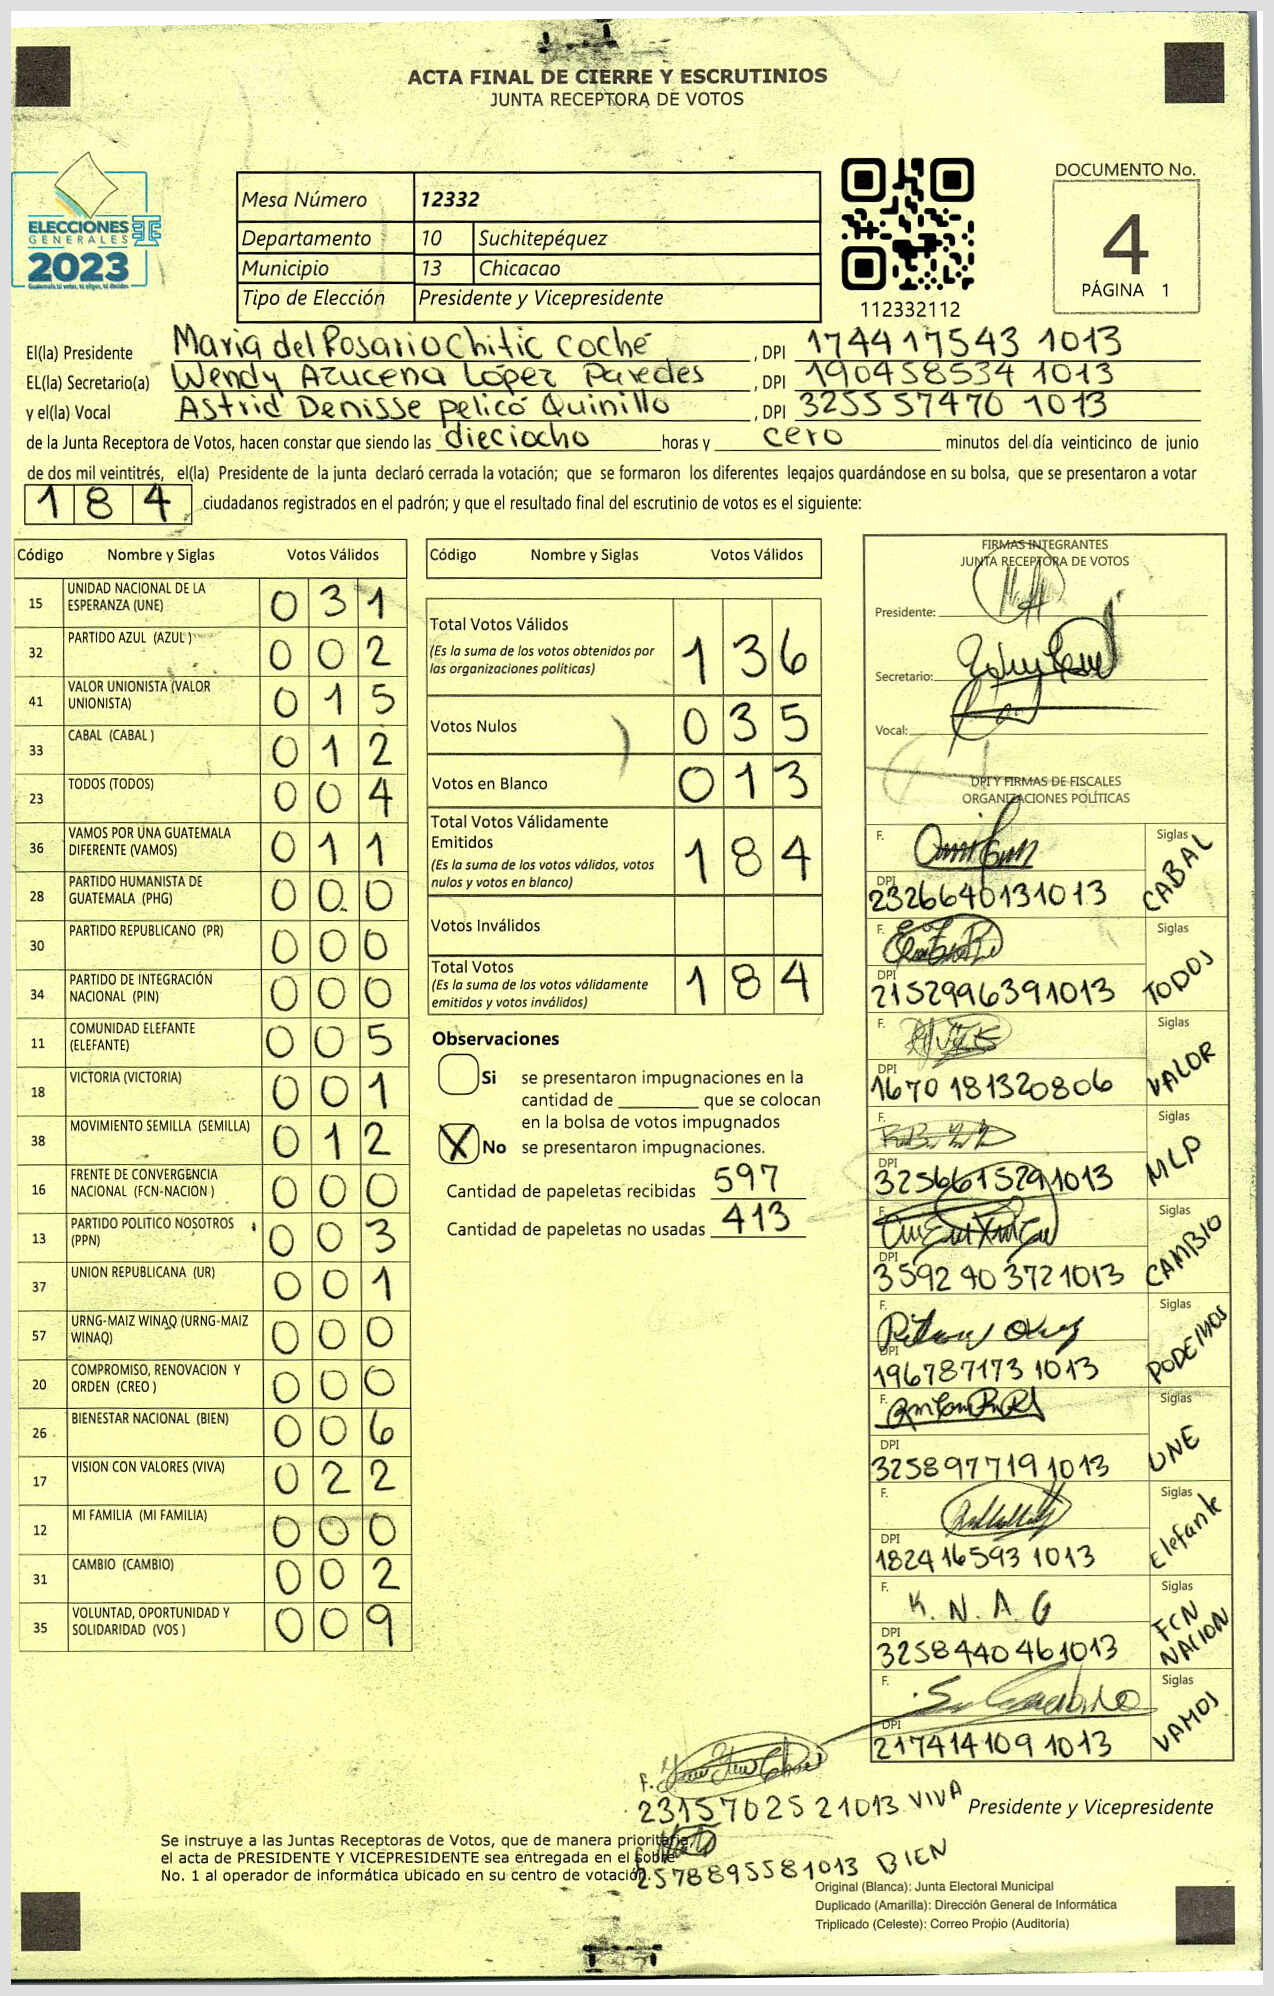 ACTA FINAL DE CIERRE Y ESCRUTINIOS
JUNTA RECEPTORA DE VOTOS
ELECCIONES
GENERALES
2023
Mesa Número 12332
Departamento 10 Suchitepéquez
Municipio 13 Chicacao
Tipo de Elección Presidente y Vicepresidente
112332112
DOCUMENTO No.
4
PÁGINA 1
El(la) Presidente Maria del Rosario Chitic Coché, DPI 174417543 1013
EL(la) Secretario(a) Wendy Azucena López Paredes, DPI 190458534 1013
y el(la) Vocal Astrid Denisse pelicó Quinillo, DPI 325557470 1013
de la Junta Receptora de Votos, hacen constar que siendo las dieciocho horas y cero minutos del día veinticinco de junio
de dos mil veintitrés, el(la) Presidente de la junta declaró cerrada la votación; que se formaron los diferentes legajos guardándose en su bolsa, que se presentaron a votar
184 ciudadanos registrados en el padrón; y que el resultado final del escrutinio de votos es el siguiente:
Código Nombre y Siglas Votos Válidos
15 UNIDAD NACIONAL DE LA ESPERANZA (UNE) 031
32 PARTIDO AZUL (AZUL ) 002
41 VALOR UNIONISTA (VALOR UNIONISTA) 015
33 CABAL (CABAL ) 012
23 TODOS (TODOS) 004
36 VAMOS POR UNA GUATEMALA DIFERENTE (VAMOS) 011
28 PARTIDO HUMANISTA DE GUATEMALA (PHG) 000
30 PARTIDO REPUBLICANO (PR) 000
34 PARTIDO DE INTEGRACIÓN NACIONAL (PIN) 000
11 COMUNIDAD ELEFANTE (ELEFANTE) 005
18 VICTORIA (VICTORIA) 001
38 MOVIMIENTO SEMILLA (SEMILLA) 012
16 FRENTE DE CONVERGENCIA NACIONAL (FCN-NACION ) 000
13 PARTIDO POLITICO NOSOTROS (PPN) 003
37 UNION REPUBLICANA (UR) 001
57 URNG-MAIZ WINAQ (URNG-MAIZ WINAQ) 000
20 COMPROMISO, RENOVACION Y ORDEN (CREO ) 000
26 BIENESTAR NACIONAL (BIEN) 006
17 VISION CON VALORES (VIVA) 022
12 MI FAMILIA (MI FAMILIA) 000
31 CAMBIO (CAMBIO) 002
35 VOLUNTAD, OPORTUNIDAD Y SOLIDARIDAD (VOS ) 009
Código Nombre y Siglas Votos Válidos
Total Votos Válidos 136
(Es la suma de los votos obtenidos por
las organizaciones políticas)
Votos Nulos 035
Votos en Blanco 013
Total Votos Válidamente
Emitidos 184
(Es la suma de los votos válidos, votos
nulos y votos en blanco)
Votos Inválidos
Total Votos 184
(Es la suma de los votos válidamente
emitidos y votos inválidos)
Observaciones
Si se presentaron impugnaciones en la
cantidad de que se colocan
en la bolsa de votos impugnados
X No se presentaron impugnaciones.
Cantidad de papeletas recibidas 597
Cantidad de papeletas no usadas 413
FIRMAS INTEGRANTES
JUNTA RECEPTORA DE VOTOS
Presidente:
Secretario:
Vocal:
DPI Y FIRMAS DE FISCALES
ORGANIZACIONES POLÍTICAS
F. Siglas CABAL
DPI 2326640131013
F. Siglas TODOS
DPI 2152996391013
F. Siglas VALOR
DPI 1670 181320806
F. Siglas MLP
DPI 3256615291013
F. Siglas CAMBIO
DPI 3592 40 3721013
F. Siglas PODEMOS
DPI 196787173 1013
F. Siglas UNE
DPI 325897719 1013
F. Siglas Elefante
DPI 182416593 1013
F. K. N. A G Siglas FCN NACION
DPI 3258440461013
F. Siglas VAMOS
DPI 217414109 1013
F.
2315702521013 VIVA
Presidente y Vicepresidente
2578895581013 BIEN
Se instruye a las Juntas Receptoras de Votos, que de manera prioritaria,
el acta de PRESIDENTE Y VICEPRESIDENTE sea entregada en el sobre
No. 1 al operador de informática ubicado en su centro de votación.
Original (Blanca): Junta Electoral Municipal
Duplicado (Amarilla): Dirección General de Informática
Triplicado (Celeste): Correo Propio (Auditoría)